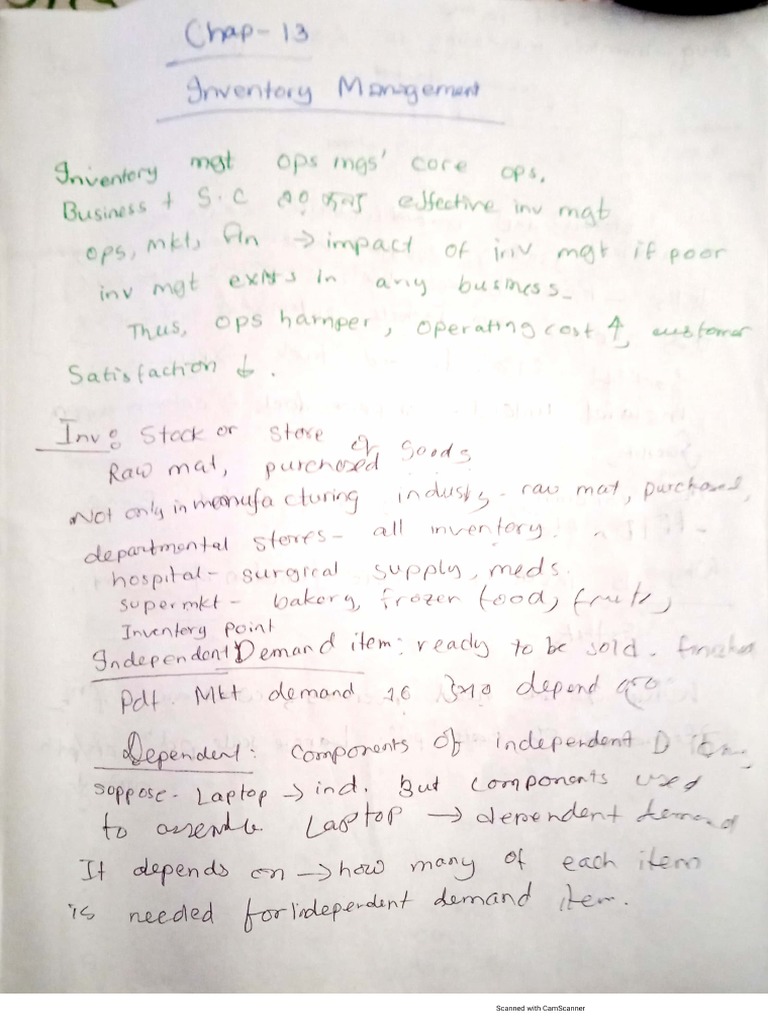 Chap-13
Inventory Management
Inventory mgt ops mgs' core ops.
Business + S.C effective inv mgt
ops, mkt, fin → impact of inv mgt if poor
inv mgt exists in any business.
Thus, ops hamper, operating cost ↑, customer
Satisfaction ↓.
Inv: Stock or store of goods
Raw mat, purchased
Not only in manufacturing industry - raw mat, purchased,
departmental stores - all inventory.
hospital - surgical supply, meds.
supermkt - bakery, frozen food, fruits,
Inventory point
Independent Demand item: ready to be sold. finished
Pdt. Mkt demand depend
Dependent: components of independent D item,
suppose - Laptop → ind. But components used
to assemble Laptop → dependent demand
It depends on → how many of each item
is needed for independent demand item.
Scanned with CamScanner